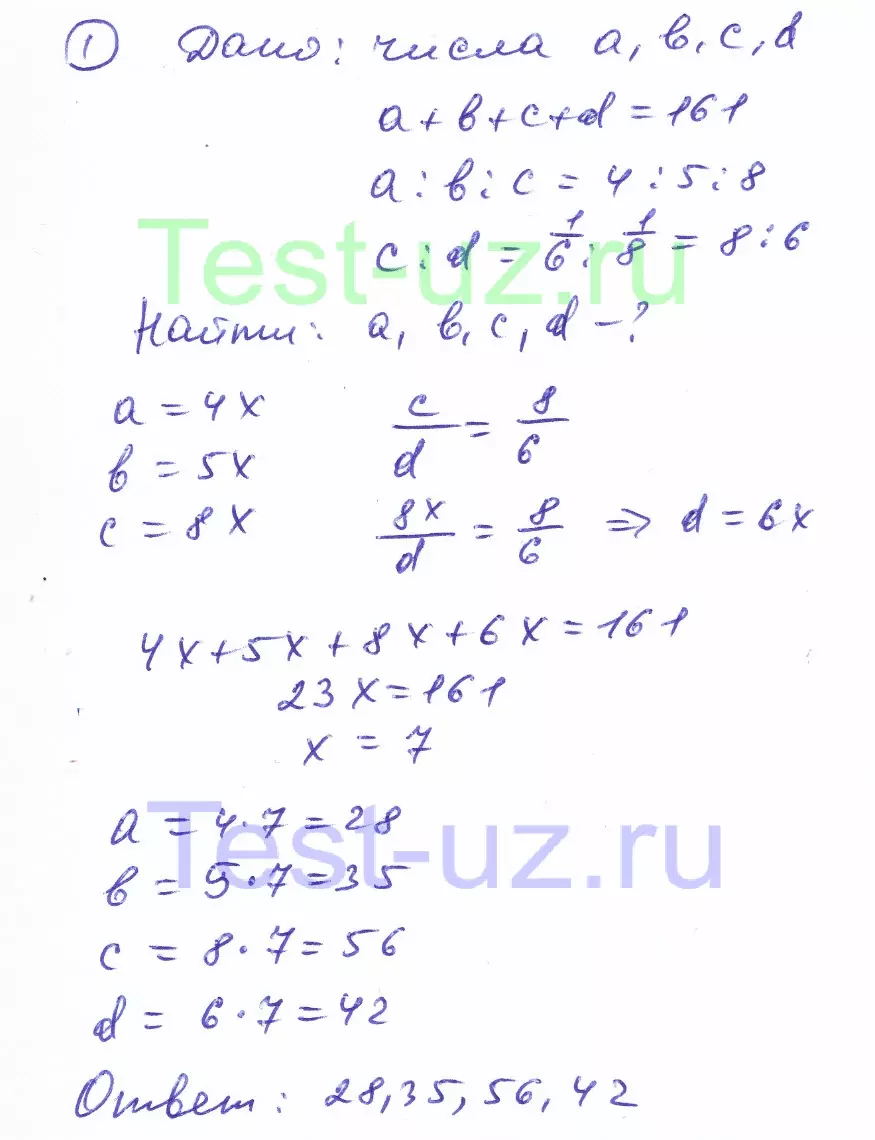 ① Дано: числа a, b, c, d
a + b + c + d = 161
a : b : c = 4 : 5 : 8
c : d = 1/6 : 1/8 = 8 : 6
Test-uz.ru
Найти: a, b, c, d – ?
a = 4x c/d = 8/6
b = 5x
c = 8x 8x/d = 8/6 ⇒ d = 6x
4x + 5x + 8x + 6x = 161
23x = 161
x = 7
a = 4·7 = 28
Test-uz.ru
b = 5·7 = 35
c = 8·7 = 56
d = 6·7 = 42
Ответ: 28, 35, 56, 42